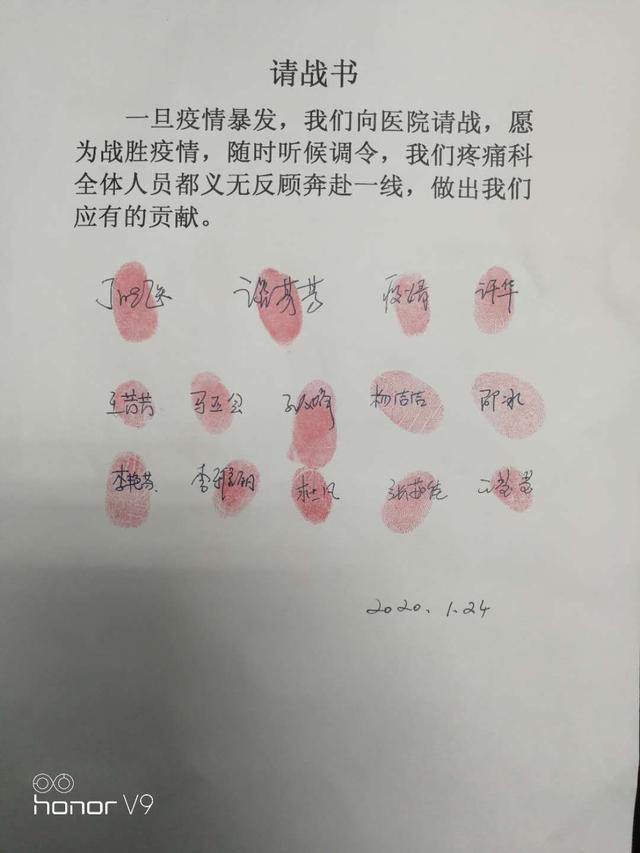 请战书
一旦疫情暴发，我们向医院请战，愿
为战胜疫情，随时听候调令，我们疼痛科
全体人员都义无反顾奔赴一线，做出我们
应有的贡献。
许华
王芳芳 马亚会 杨洁洁 邵冰
李艳芬 李雅丽 杜凡
2020.1.24
honor V9